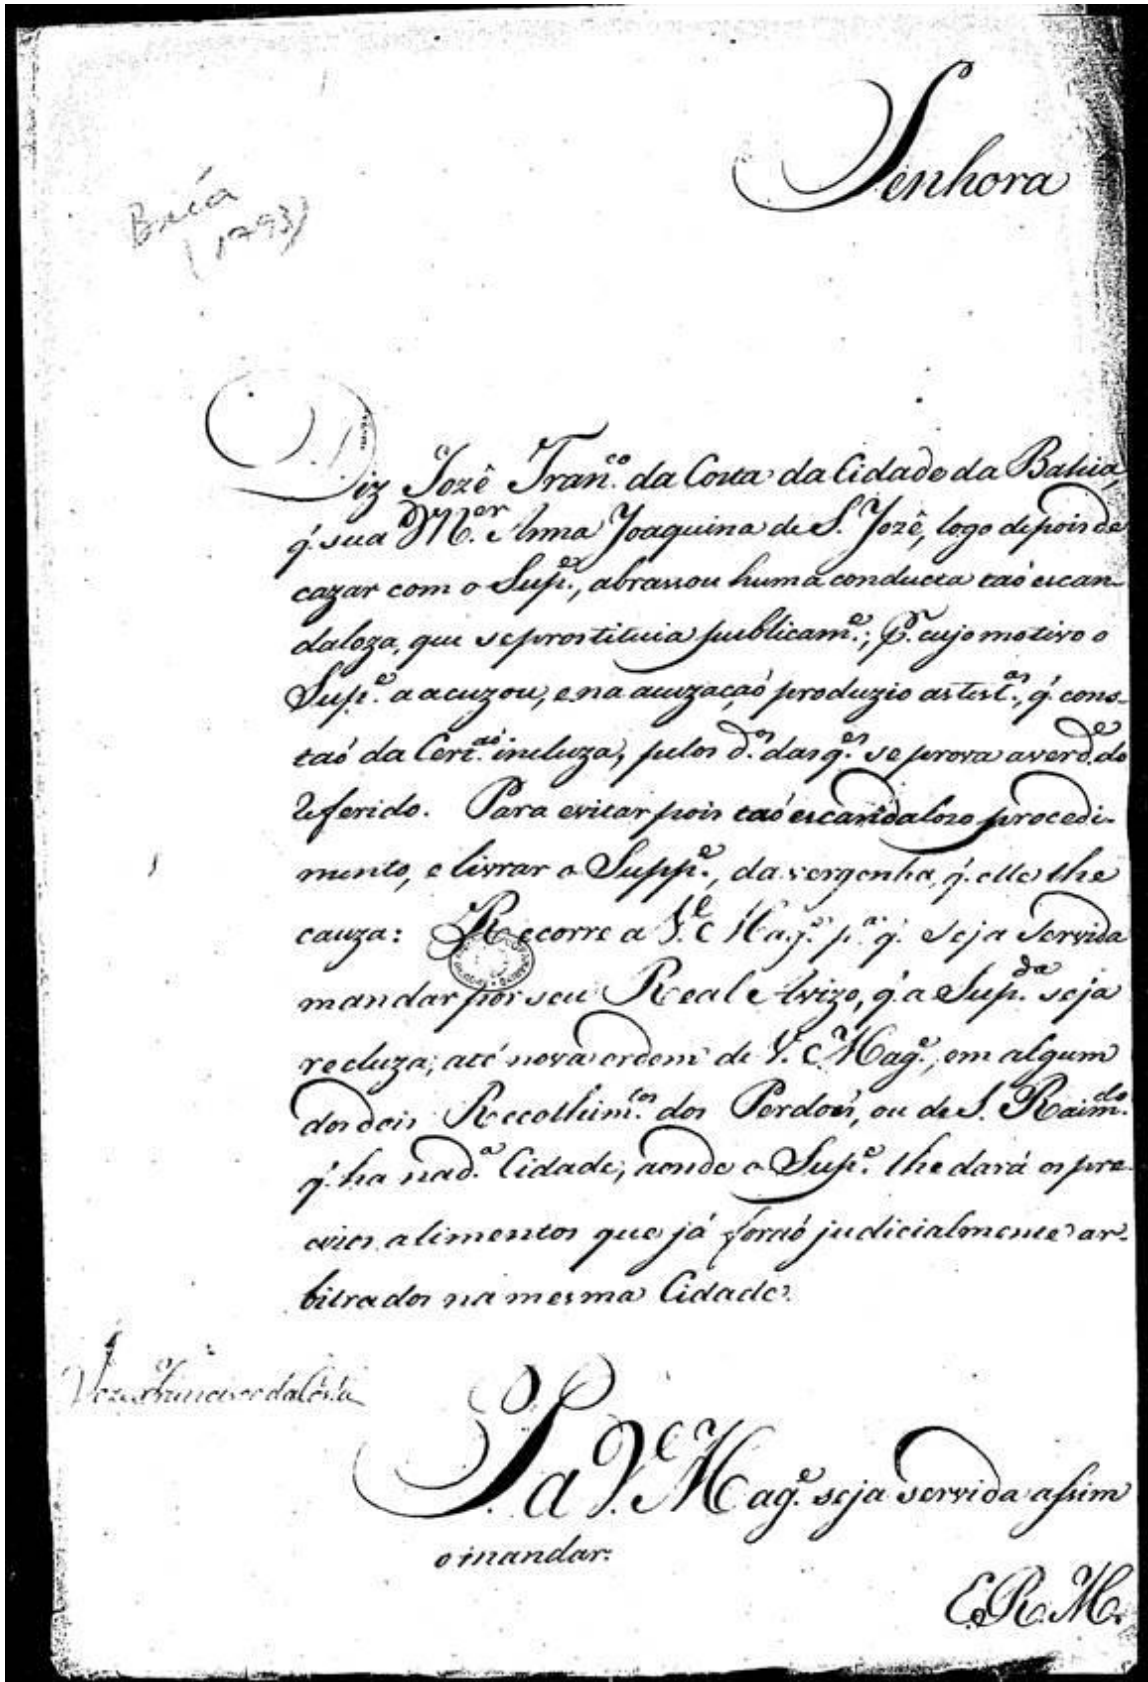 Senhora
Baía
(1793)
Diz Jozê Fran.co da Costa da Cidade da Bahia,
q. sua M.er Anna Joaquina de S. Jozê, logo depois de
cazar com o Sup.e, abrassou huma conducta taó escan-
daloza, que se prostituia publicam.e; p.r cujo motivo o
Sup.e a acuzou, e na acuzaçaó produzio as test.as, q. cons-
taó da Cert.aó incluza, pelos d.os das q.es se prova a verd.e do
referido. Para evitar pois taó escandalozo procedi-
mento, e livrar o Supp.e, da vergonha, q. ella lhe
cauza: Recorre a V. Mag.e p.a q. seja servida
mandar por seu Real Avizo, q. a Sup.da seja
recluza, até nova ordem de V. Mag.e, em algum
dos dois Recolhim.tos dos Perdoés, ou de S. Raim.do
q. ha na d.a Cidade, aonde o Sup.e lhe dará os pre-
cizos alimentos que já foraó judicialmente ar-
bitrados na mesma Cidade.
Joze Francisco da Costa
P. a V. Mag.e seja servida assim
o mandar.
E. R. M.